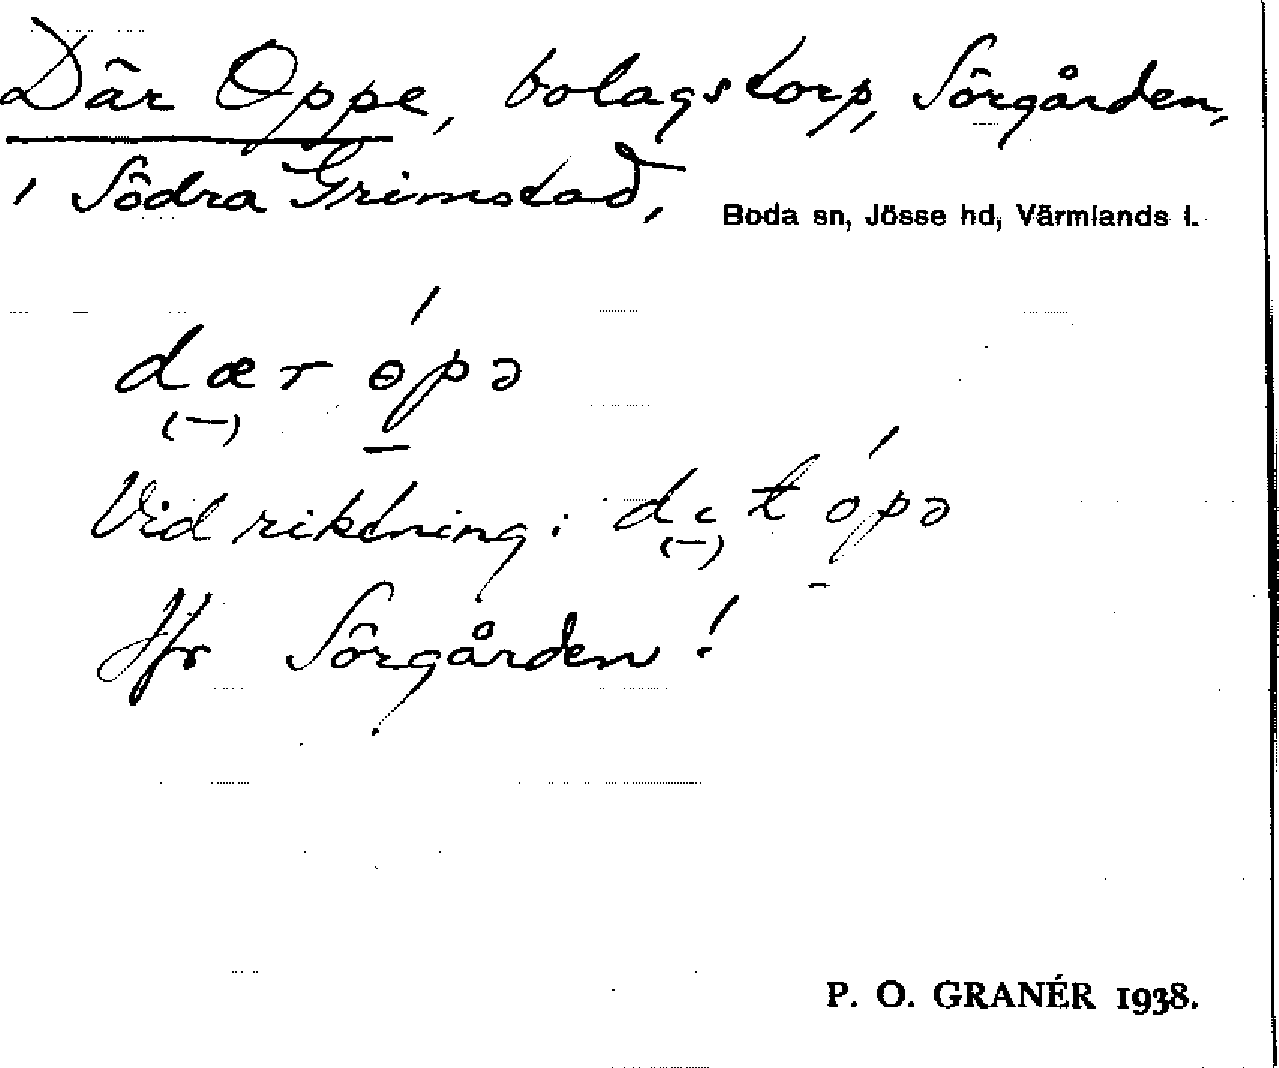 Där Oppe, bolagstorp, Sörgården,
i Södra Grimstad,
Boda sn, Jösse hd, Värmlands l.
dær ɵ́pə
(—) —
Vid riktning: dɩt ópə
(—) —
Jfr Sörgården!
P. O. GRANÉR 1938.